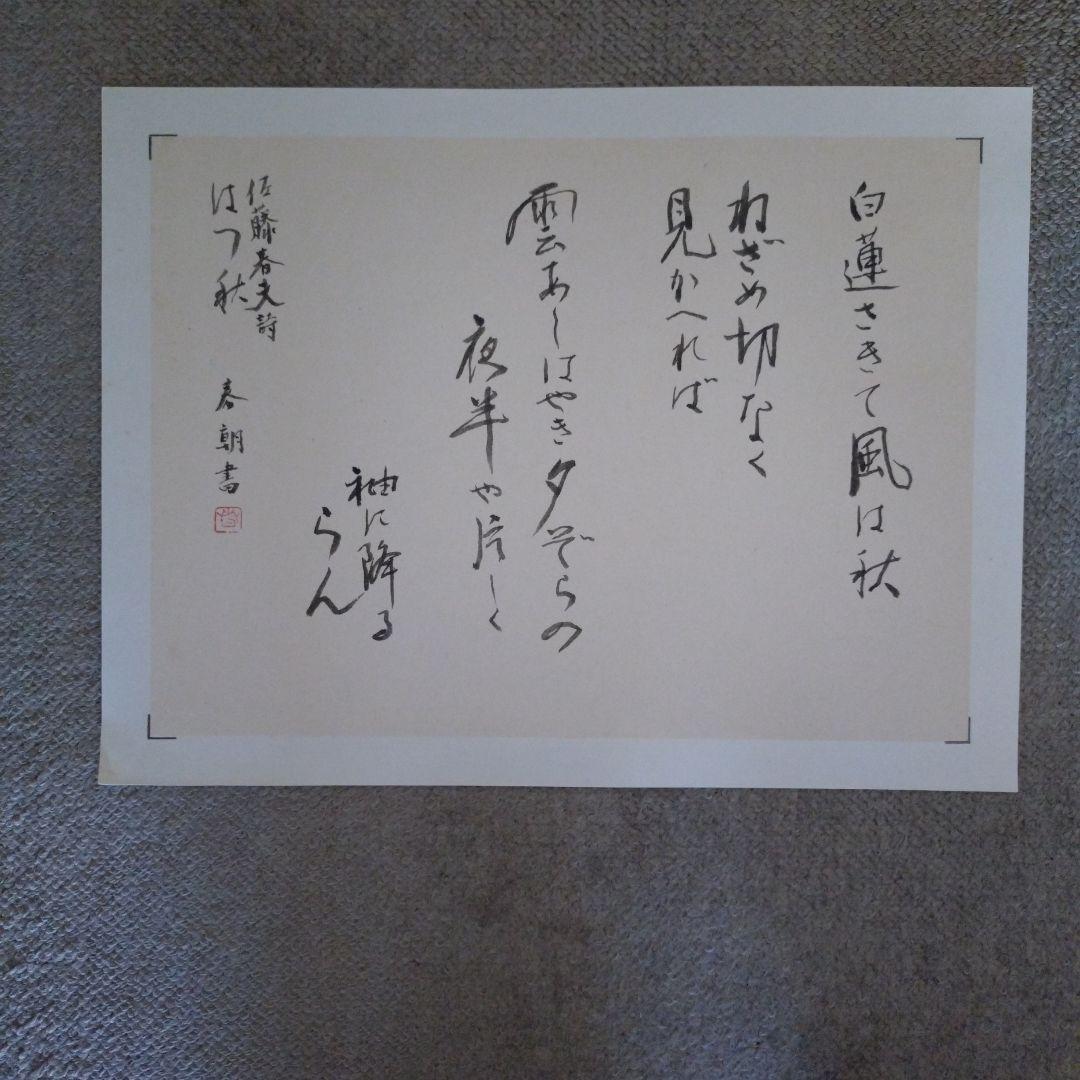 白蓮さきて風は秋
ねざめ切なく
見かへれば
雲あしはやき夕ぞらの
夜半や片しく
袖に降る
らん
佐藤春夫詩
はつ秋
春朝書